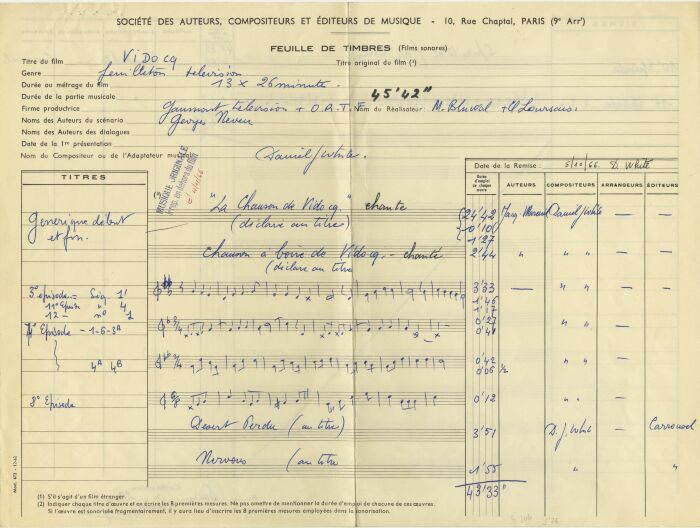 SOCIÉTÉ DES AUTEURS, COMPOSITEURS ET ÉDITEURS DE MUSIQUE - 10, Rue Chaptal, PARIS (9e Arrt)
FEUILLE DE TIMBRES (Films sonores)
Titre du film Vidocq Titre original du film (1)
Genre feuilleton télévision
Durée ou métrage du film 13 x 26 minutes.
Durée de la partie musicale 45'42"
Firme productrice Gaumont télévision + O.R.T.F Nom du Réalisateur: M. Bluwal +
Noms des Auteurs du scénario Georges Neveu
Noms des Auteurs des dialogues
Date de la 1re présentation
Nom du Compositeur ou de l'Adaptateur musical Daniel J White.
Date de la Remise : 5/10/66. D. White
TITRES
(2)
MUSIQUE ORIGINALE
Durée d'emploi de chaque œuvre
AUTEURS COMPOSITEURS ARRANGEURS ÉDITEURS
Générique début
et fin.
"La Chanson de Vidocq" chanté
(déclaré au titre)
24'42 Daniel J White — —
0'10
1'27
Chanson à boire de Vidocq - chanté
(déclaré au titre
2'44 " " " — —
3e épisode - 1'
3'33 — " " — —
11e 4
1'46
12 - no 1
1'17
Episode - 1-6-3A
0'27 " "
0'41
4A 4B
0'42 " " —
0'06 1/2
8e Episode
0'12 " " —
Désert Perdu (au titre)
3'51 D. J. White — Carrousel
Nervous (au titre
1'55 " "
43'33"
(1) S'il s'agit d'un film étranger.
(2) Indiquer chaque titre d'œuvre et en écrire les 8 premières mesures. Ne pas omettre de mentionner la durée d'emploi de chacune de ces œuvres.
Si l'œuvre est sonorisée fragmentairement, il y aura lieu d'inscrire les 8 premières mesures employées dans la sonorisation.